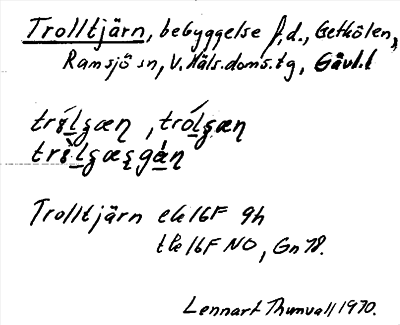 Trolltjärn, bebyggelse f.d., Getkölen,
Ramsjö sn, V. Häls. doms. tg, Gävl. l
Trolltjärn ek 16F 9h
tk 16F NO, Gn 78.
Lennart Thunvall 1970.